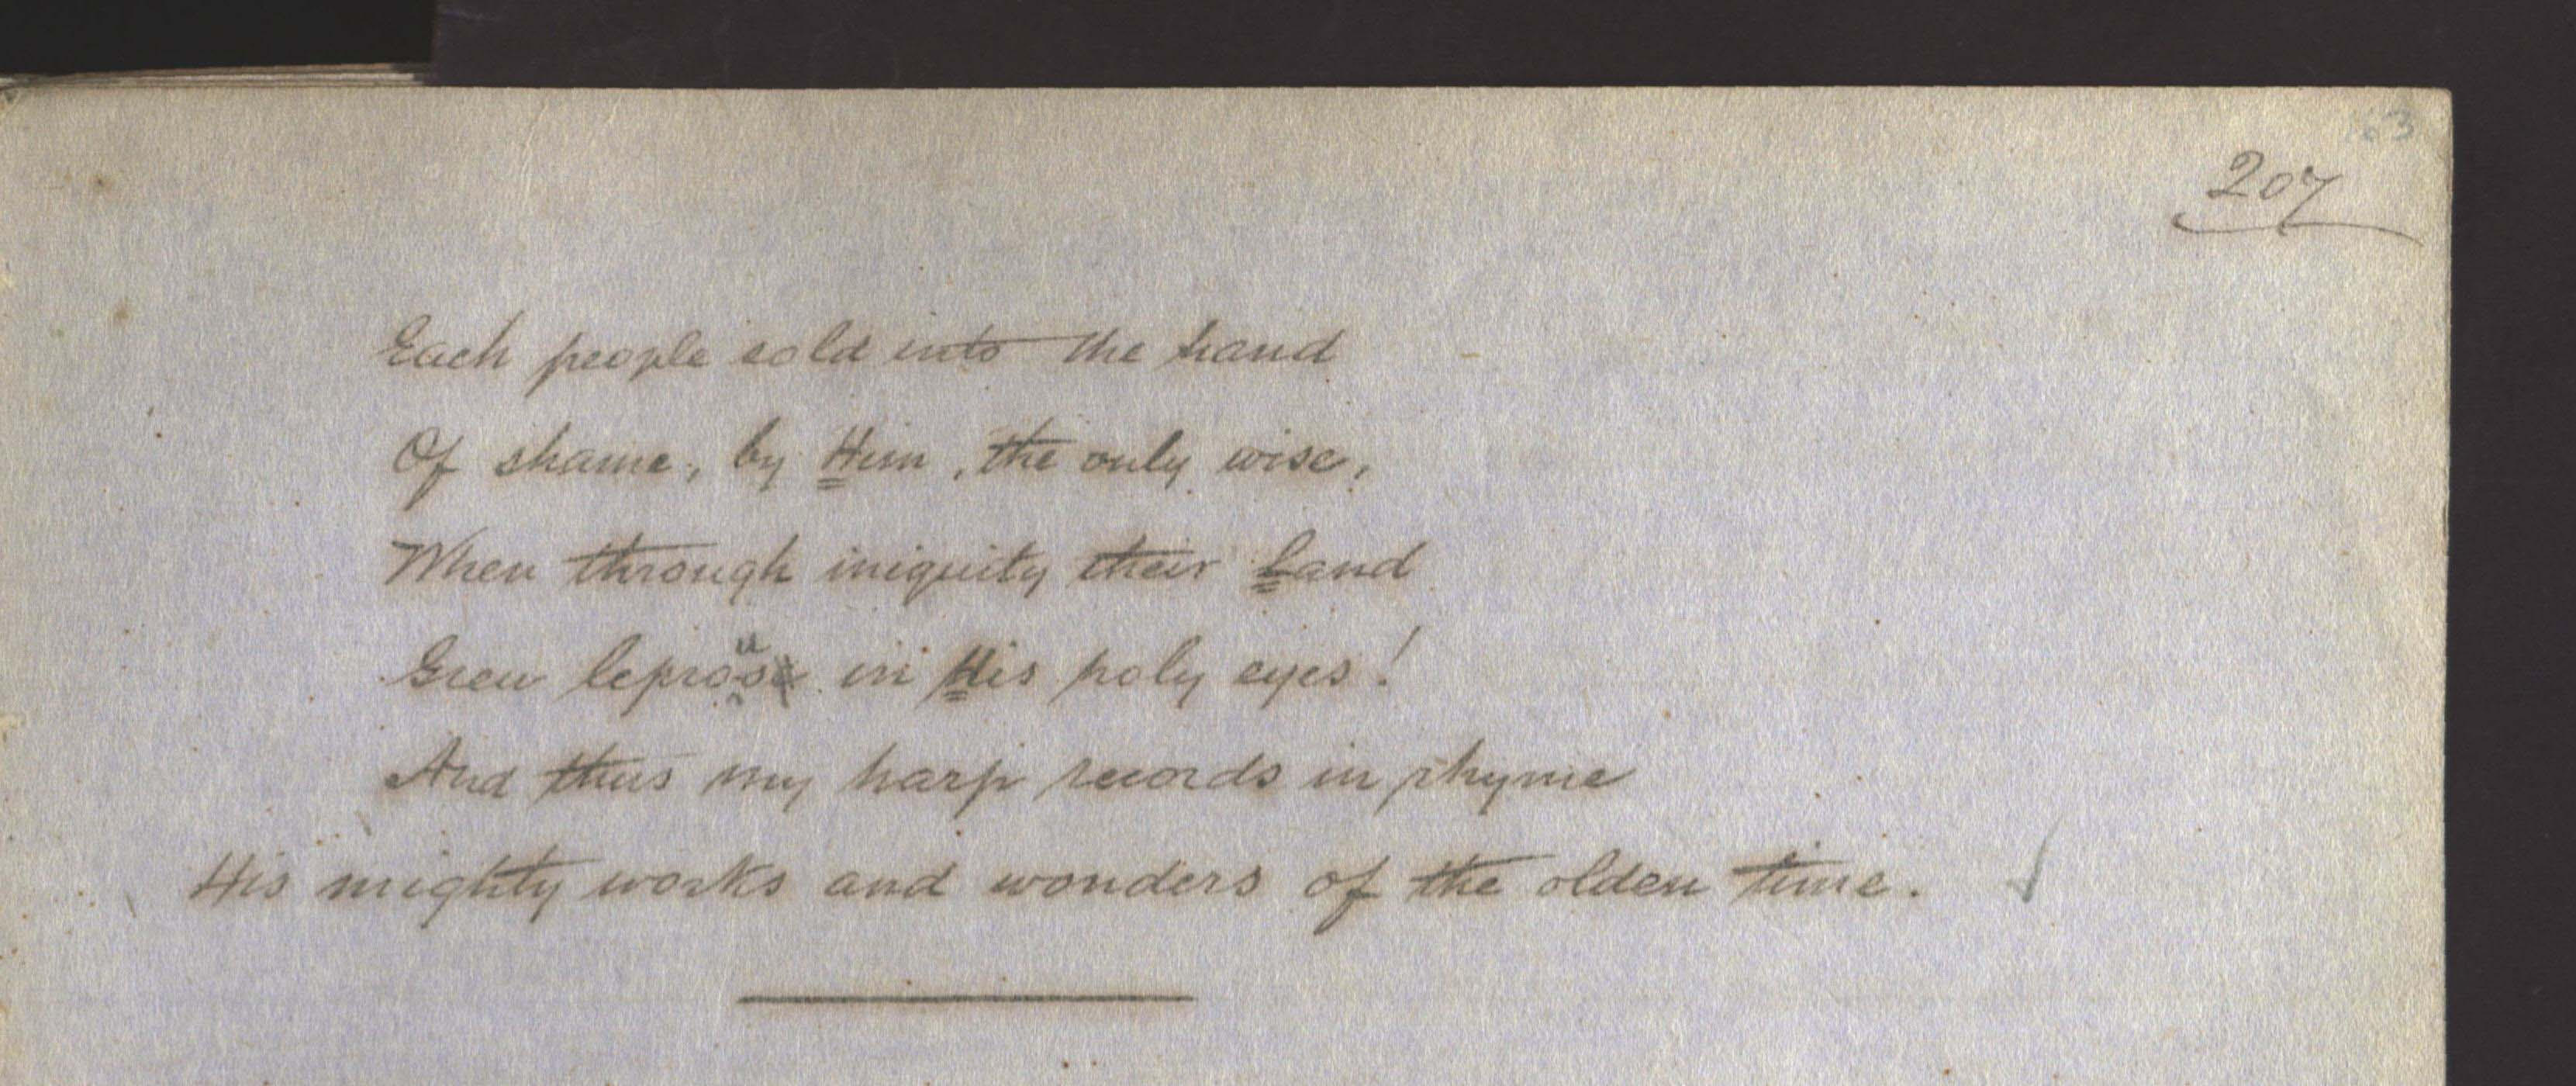 63
207
Each people sold into the hand
Of shame, by Him, the only wise,
When through iniquity their Land
Grew leprous in His holy eyes!
And thus my harp records in rhyme
His mighty works and wonders of the olden time.